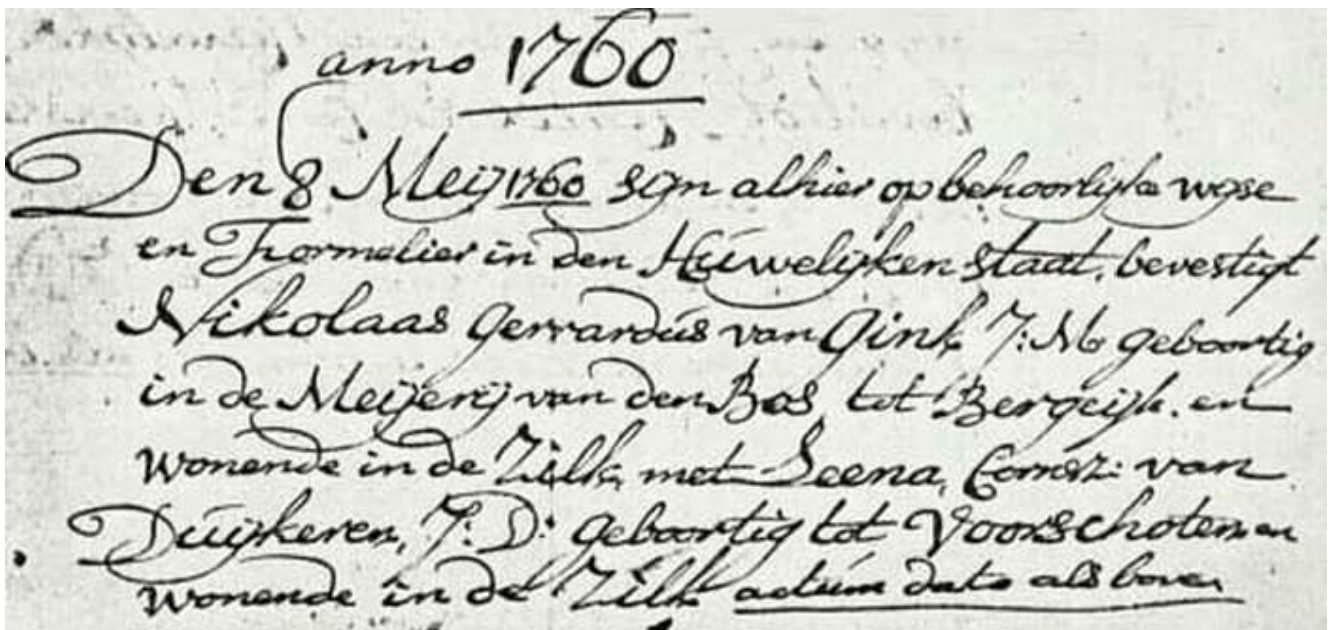 anno 1760
Den 8 Meij 1760 sijn alhier op behoorlijke wijse
en Formelier in den Húwelijken staat, bevestigt
Nikolaas Gerrardús van Gink, J:M. geboortig
in de Meijerij van den Bos, tot Bergeijk. en
wonende in de Zilk, met Leena, Cornsz: van
Dúijkeren, J:D: geboortig tot Voorschoten en
wonende in de Zilk actúm dato als boven